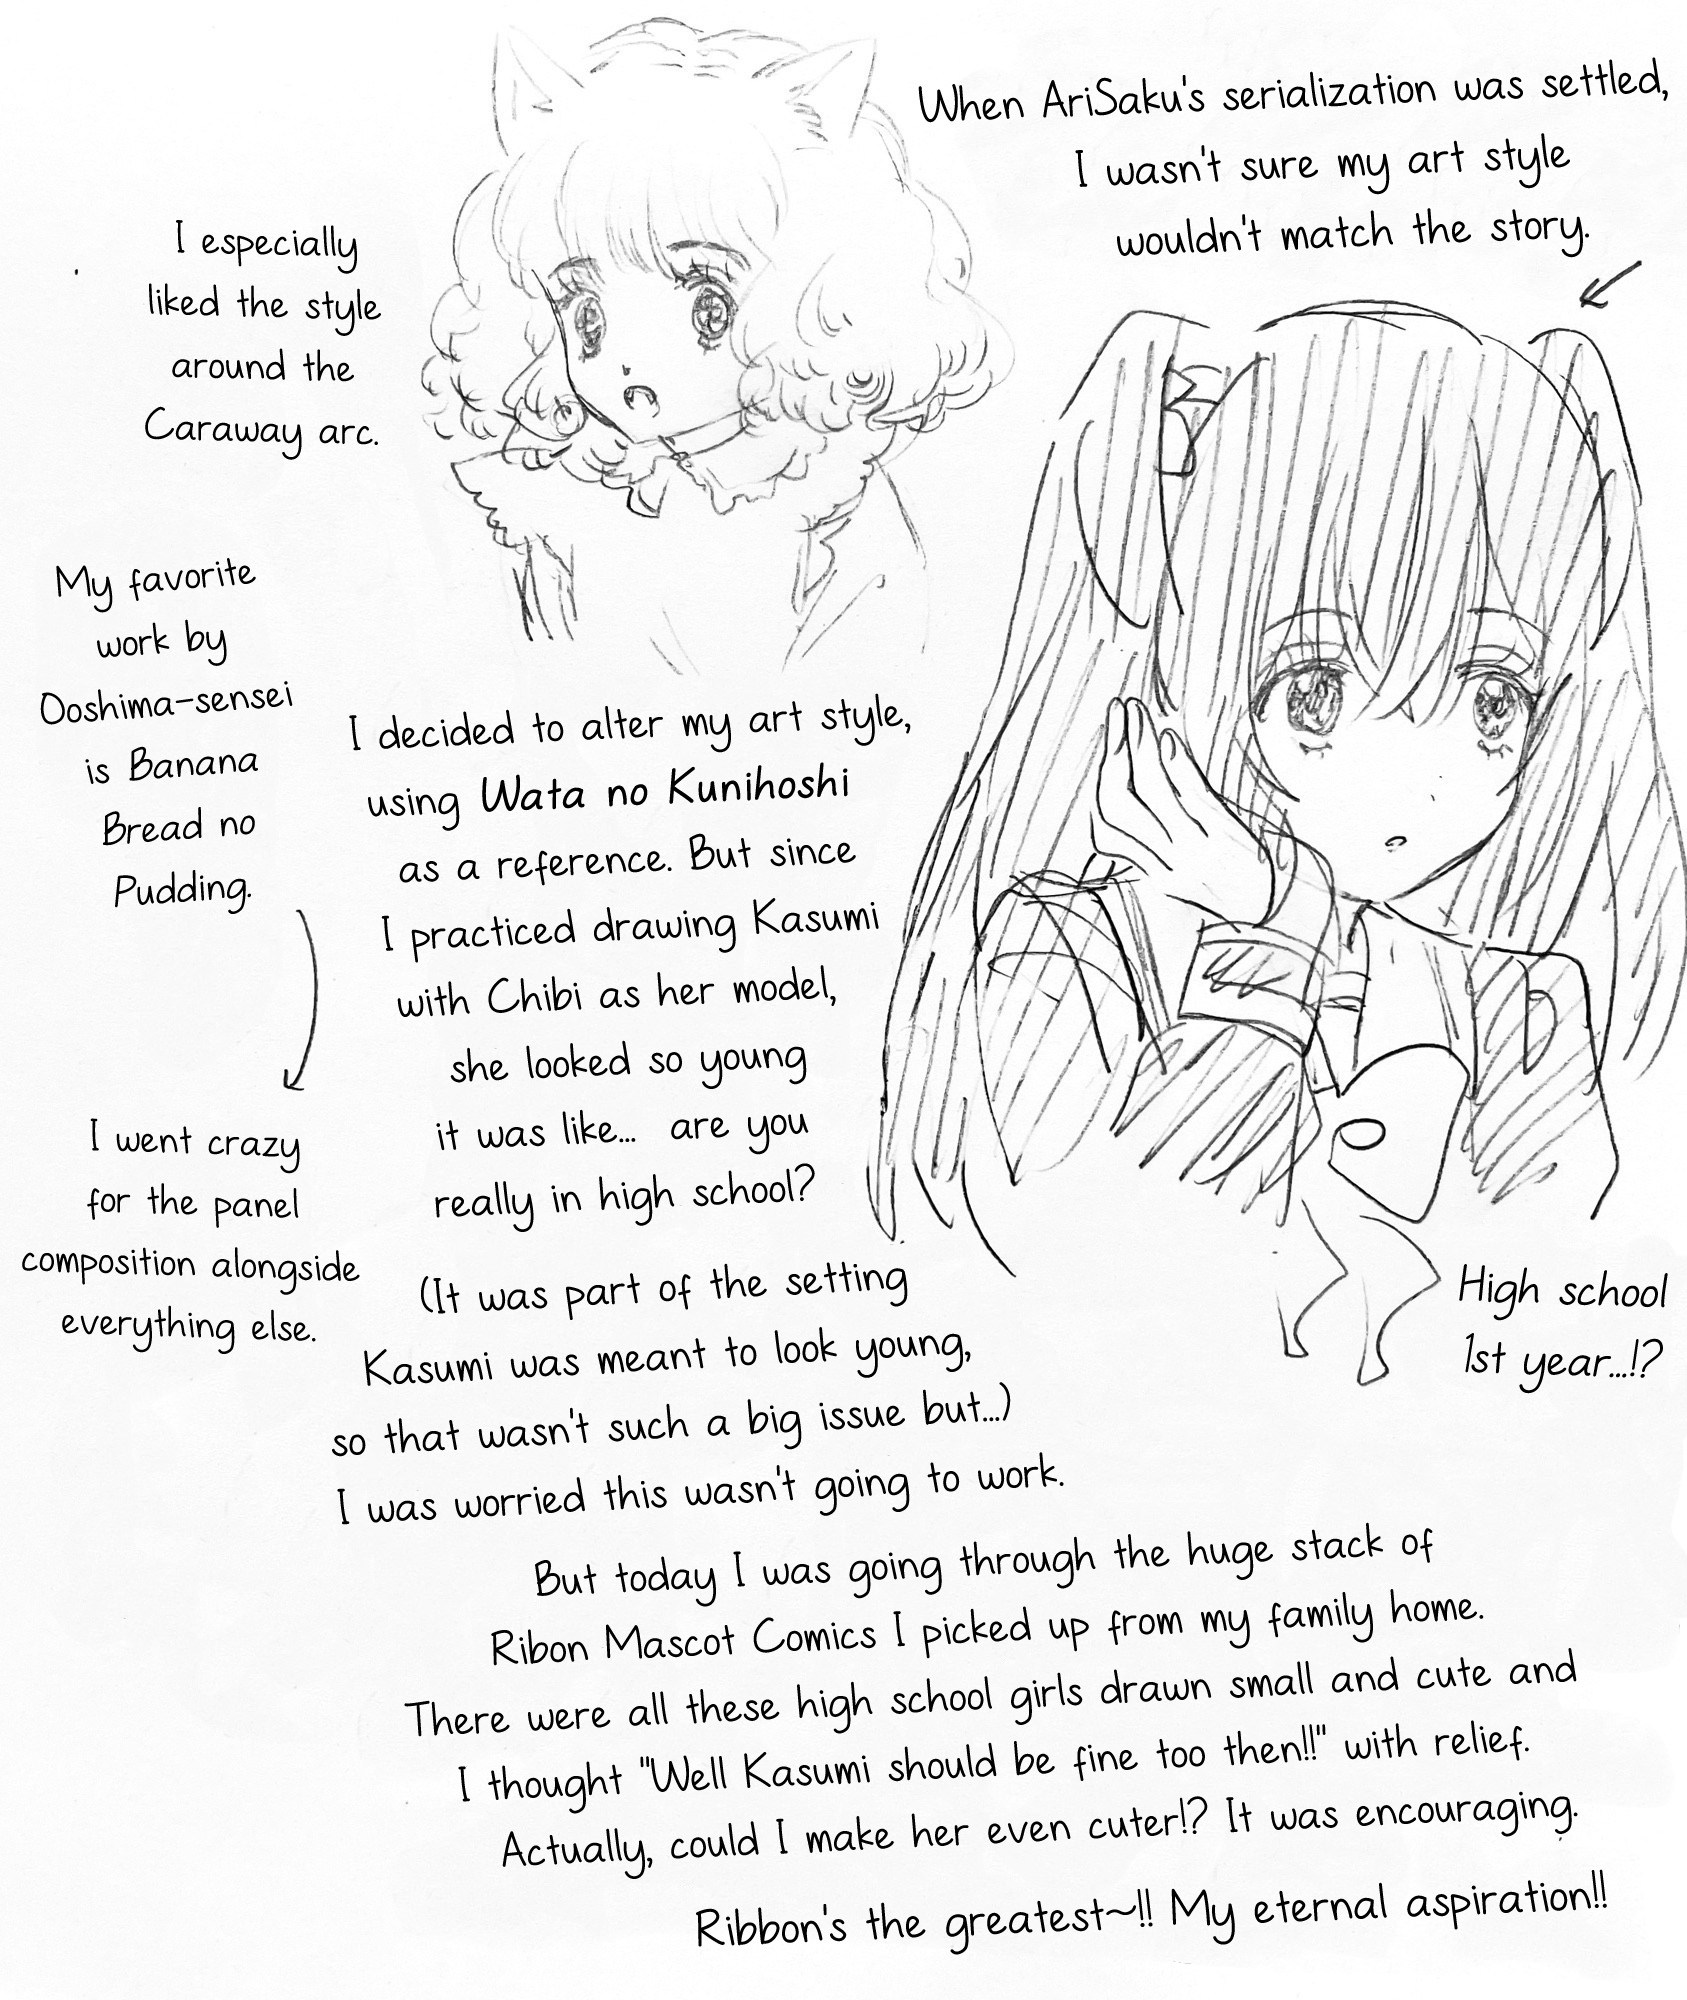 When AriSaku's serialization was settled,
I wasn't sure my art style
wouldn't match the story.
I especially
liked the style
around the
Caraway arc.
My favorite
work by
Ooshima-sensei
is Banana
Bread no
Pudding.
I went crazy
for the panel
composition alongside
everything else.
I decided to alter my art style,
using Wata no Kunihoshi
as a reference. But since
I practiced drawing Kasumi
with Chibi as her model,
she looked so young
it was like... are you
really in high school?
(It was part of the setting
Kasumi was meant to look young,
so that wasn't such a big issue but...)
I was worried this wasn't going to work.
High school
1st year...!?
But today I was going through the huge stack of
Ribon Mascot Comics I picked up from my family home.
There were all these high school girls drawn small and cute and
I thought "Well Kasumi should be fine too then!!" with relief.
Actually, could I make her even cuter!? It was encouraging.
Ribbon's the greatest~!! My eternal aspiration!!